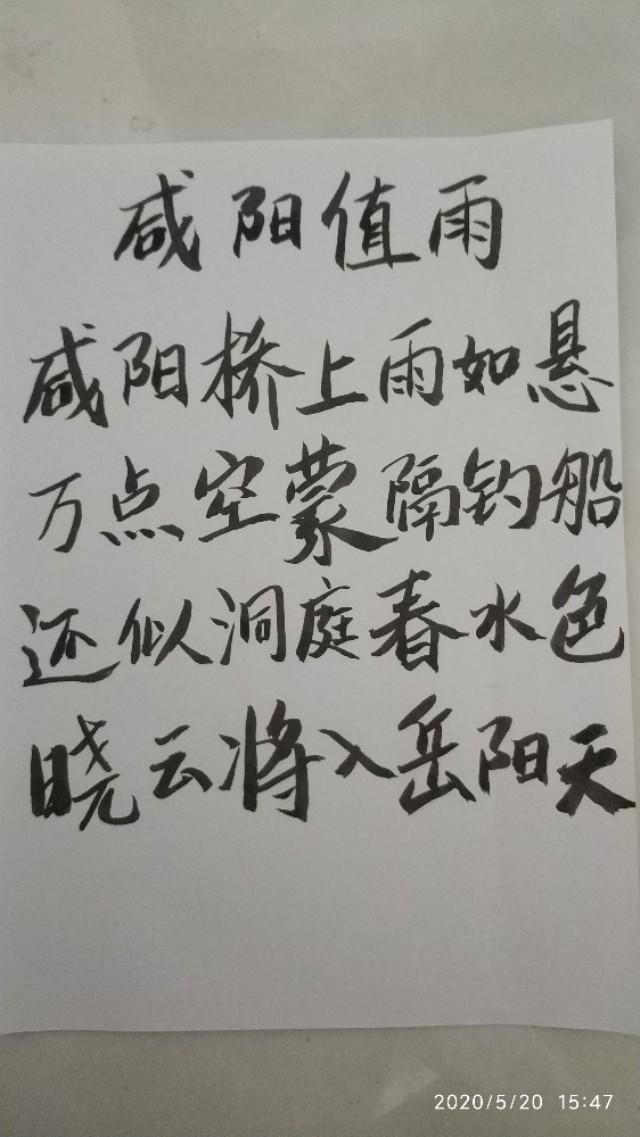 咸阳值雨
咸阳桥上雨如悬
万点空蒙隔钓船
还似洞庭春水色
晓云将入岳阳天
2020/5/20 15:47